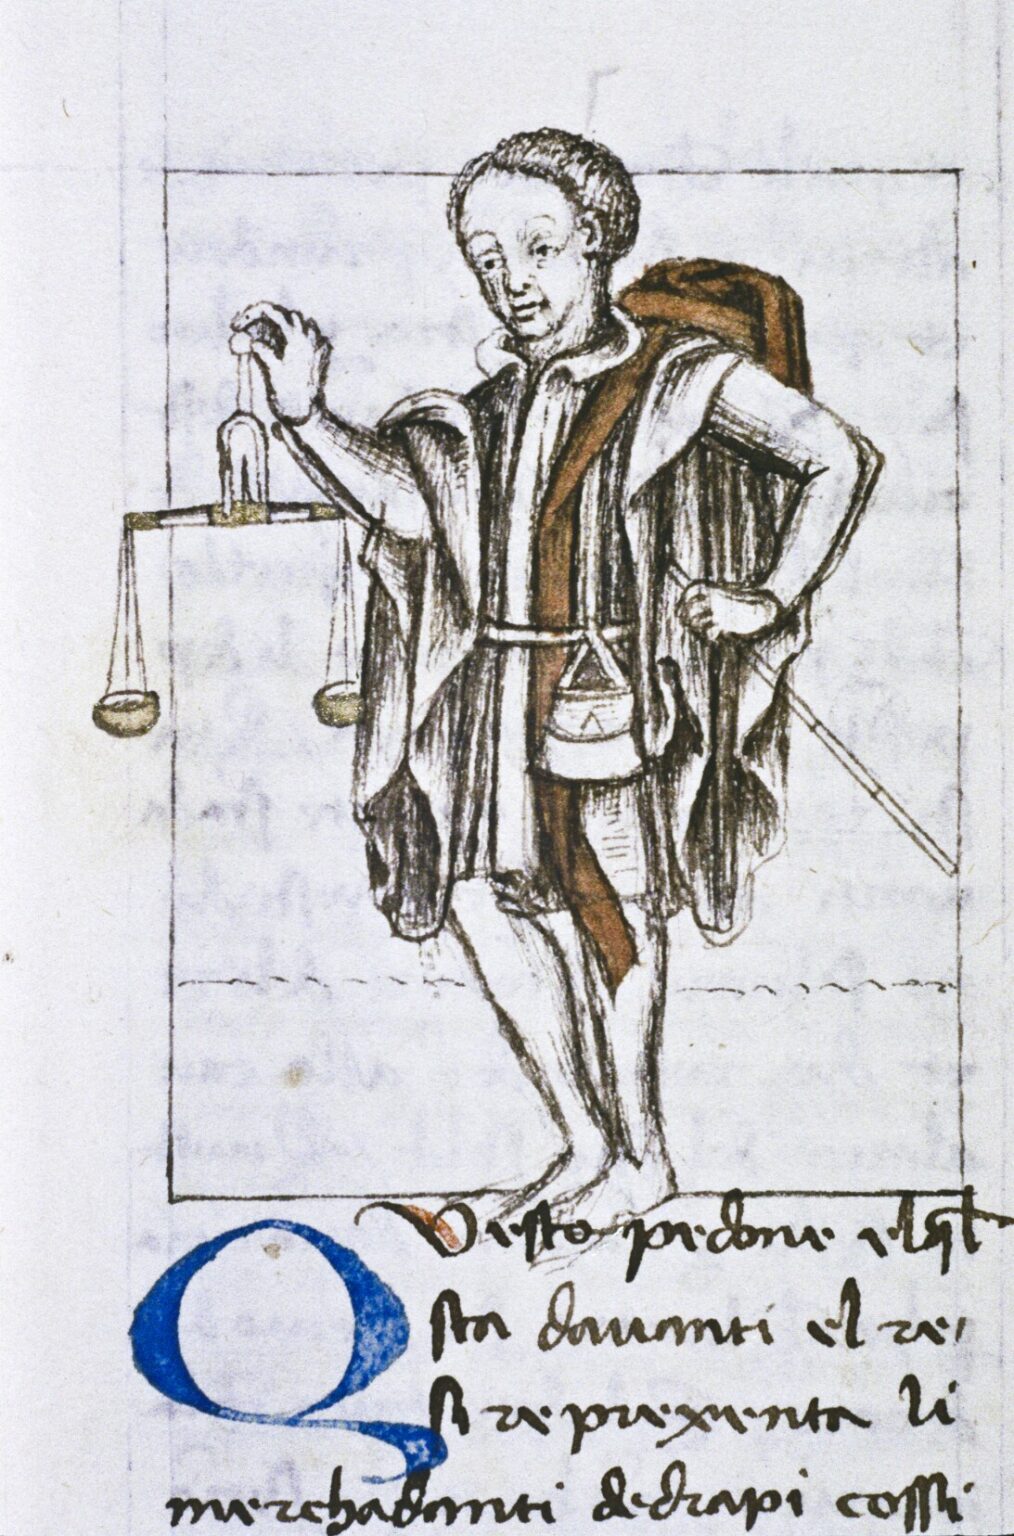 Questo pedone elql
sta dauanti el re
si reprexenta li
merchadanti dedrapi cossi